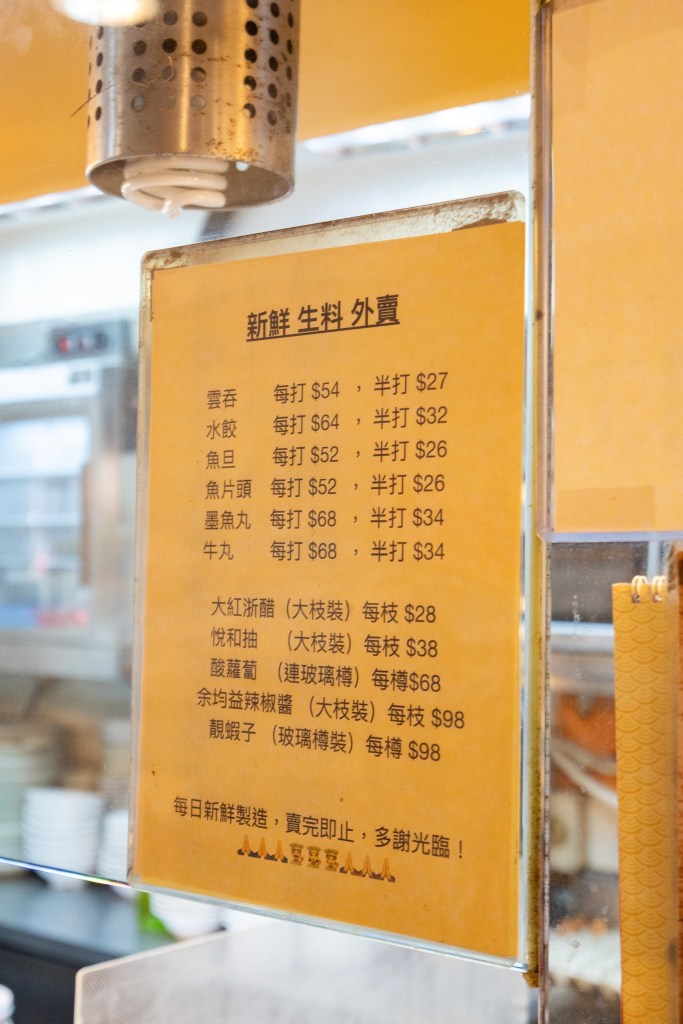 新鮮 生料 外賣
雲吞 每打 $54 ， 半打 $27
水餃 每打 $64 ， 半打 $32
魚旦 每打 $52 ， 半打 $26
魚片頭 每打 $52 ， 半打 $26
墨魚丸 每打 $68 ， 半打 $34
牛丸 每打 $68 ， 半打 $34
大紅浙醋（大枝裝）每枝 $28
悅和抽 （大枝裝）每枝 $38
酸蘿蔔 （連玻璃樽）每樽$68
余均益辣椒醬 （大枝裝）每枝 $98
靚蝦子 （玻璃樽裝）每樽 $98
每日新鮮製造，賣完即止，多謝光臨！